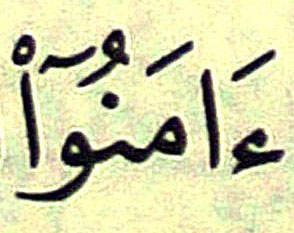 ءَامَنُوٓا۟